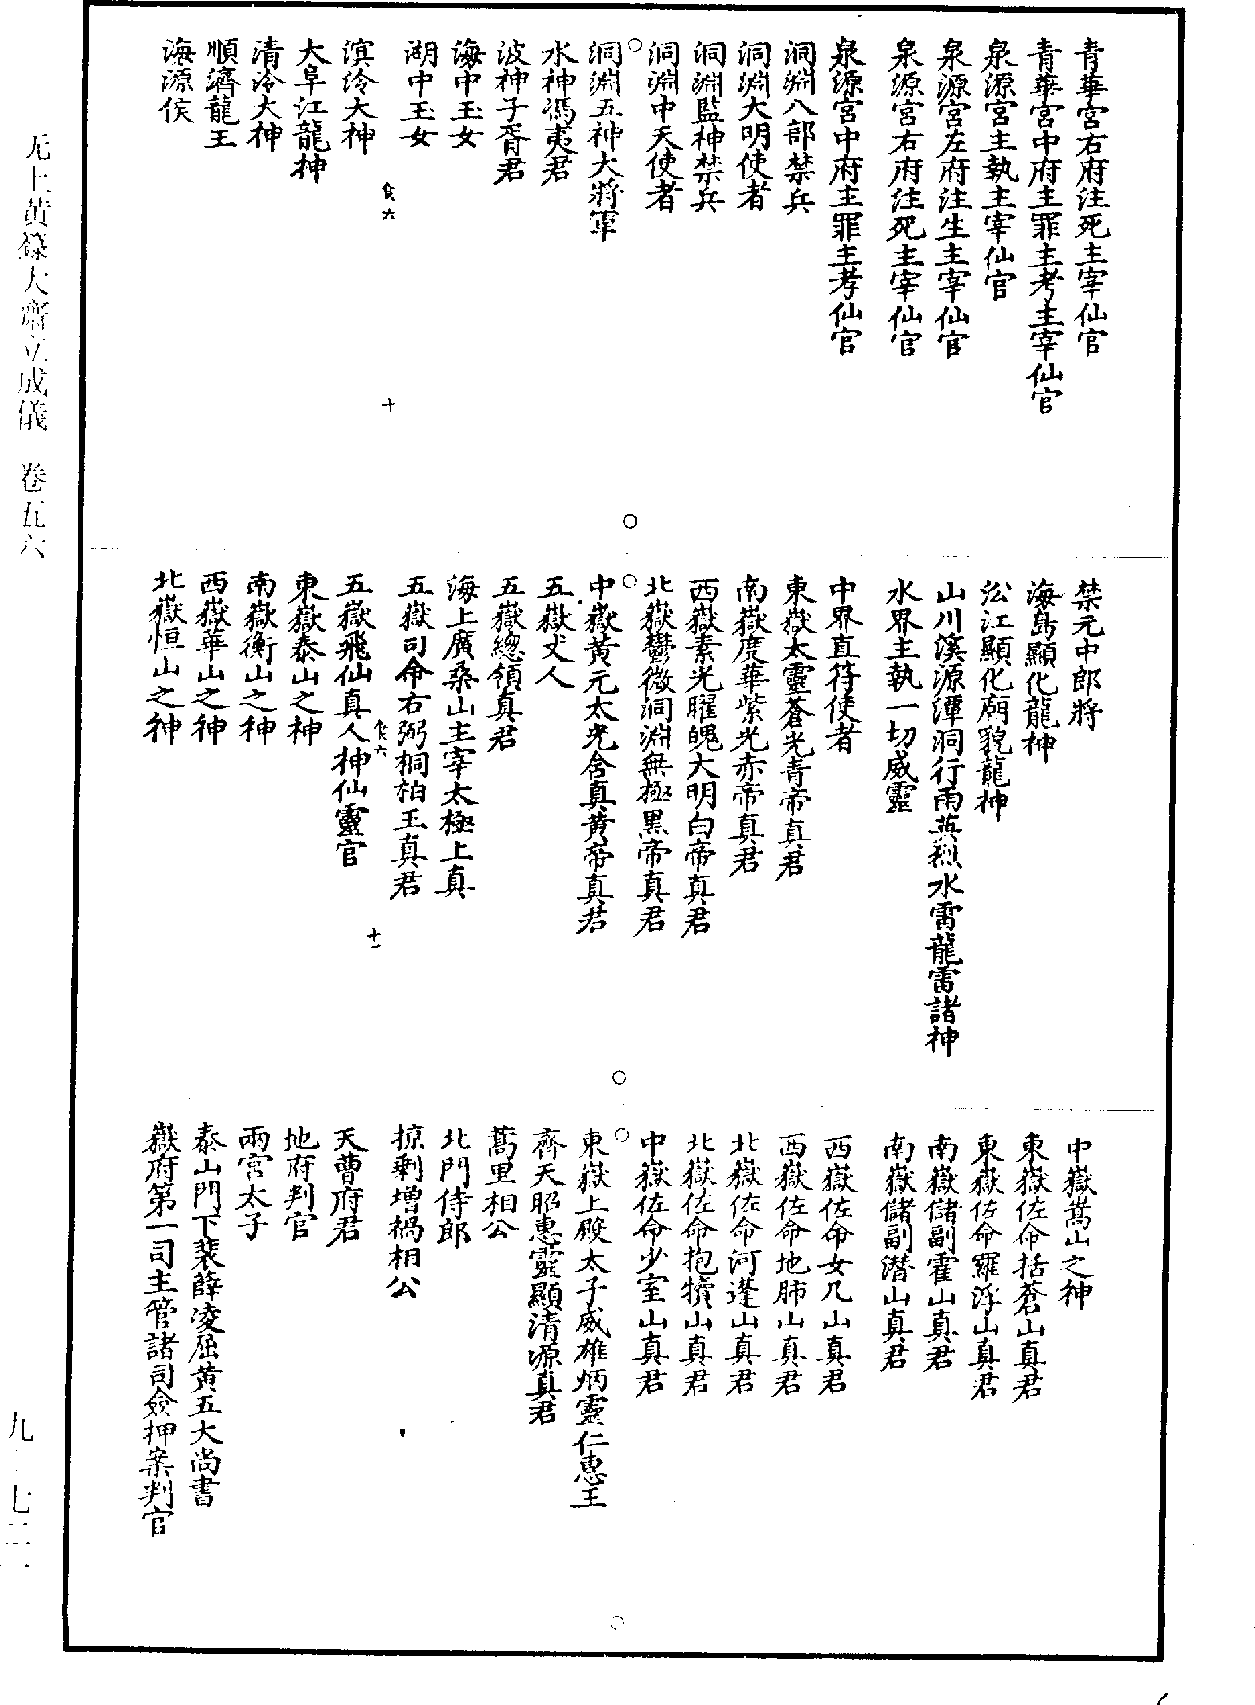 青華宮右府注死主宰仙官
青華宮中府主罪主考主宰仙官
泉源宮主執主宰仙官
泉源宮左府注生主宰仙官
泉源宮右府注死主宰仙官
泉源宮中府主罪主考仙官
洞淵八部禁兵
洞淵大明使者
洞淵監神禁兵
洞淵中天使者
洞淵五神大將軍
水神馮夷君
波神子胥君
海中玉女
湖中玉女
十
溟泠大神
大阜江龍神
清泠大神
順濟龍王
海源侯
禁元中郎將
海島顯化龍神
沿江顯化廟貌龍神
山川溪源潭洞行雨英烈水雷龍雷諸神
水界主執一切威靈
中界直符使者
東嶽太靈蒼光青帝真君
南嶽慶華紫光赤帝真君
西嶽素光曜魄大明白帝真君
北嶽鬱微洞淵無極黑帝真君
中嶽黃元太光含真黃帝真君
五嶽丈人
五嶽總領真君
海上廣桑山主宰太極上真
五嶽司命右弼桐柏王真君
十一
五嶽飛仙真人神仙靈官
東嶽泰山之神
南嶽衡山之神
西嶽華山之神
北嶽恒山之神
中嶽嵩山之神
東嶽佐命括蒼山真君
東嶽佐命羅浮山真君
南嶽儲副霍山真君
南嶽儲副潛山真君
西嶽佐命女几山真君
西嶽佐命地肺山真君
北嶽佐命河逢山真君
北嶽佐命抱犢山真君
中嶽佐命少室山真君
東嶽上殿太子威雄炳靈仁惠王
齊天昭惠靈顯清源真君
蒿里相公
北門侍郎
掠剩增禍相公
天曹府君
地府判官
兩宮太子
泰山門下裴薛凌屈黃五大尚書
嶽府第一司主管諸司僉押案判官
无上黃籙大齋立成儀 卷五六